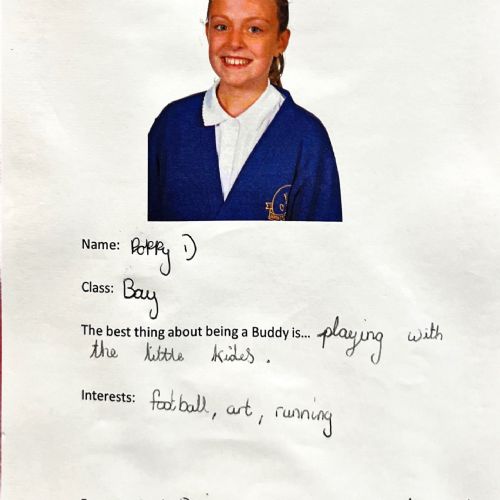 Name: Poppy :)
Class: Bay
The best thing about being a Buddy is... playing with
the little kides.
Interests: football, art, running